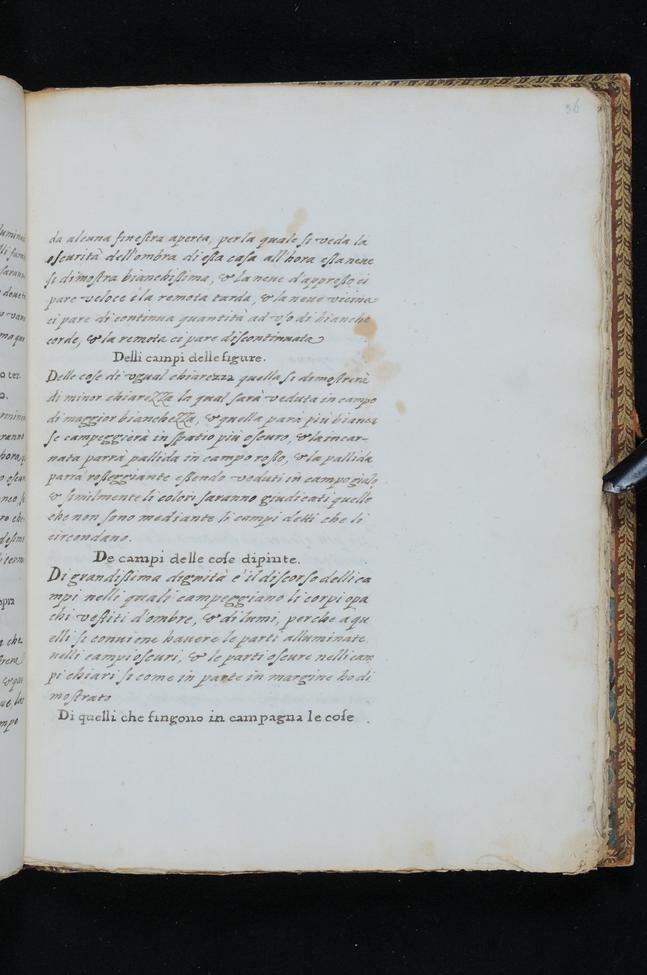 36
da alcuna finestra aperta, per la quale si veda la
oscurità dell'ombra di essa casa all'hora essa neue
si dimostra bianchissima, & la neue d'appresso ci
pare veloce e la remota tarda, & la neue vicina
ci pare di continua quantità ad vso di bianche
corde, & la remota ci pare discontinuata
Delli campi delle figure.
Delle cose di vgual chiarezza quella si dimostrerà
di minor chiarezza la qual sarà veduta in campo
di maggior bianchezza, & quella parà più bianca
se campeggierà in spatio più oscuro, & la incar-
nata parrà pallida in campo rosso, & la pallida
parrà rosseggiante essendo veduti in campo giallo
& similmente li colori saranno giudicati quelle
che non sono mediante li campi detti che li
circondano.
De campi delle cose dipinte.
Di grandissima dignità e il discorso delli ca
mpi nelli quali campeggiano li corpi opa
chi vestiti d'ombre, & di lumi, perche a qu
elli si conuiene hauere le parti alluminate
nelli campi oscuri, & le parti oscure nelli cam
pi chiari si come in parte in margine ho di
mostrato
Di quelli che fingono in campagna le cose